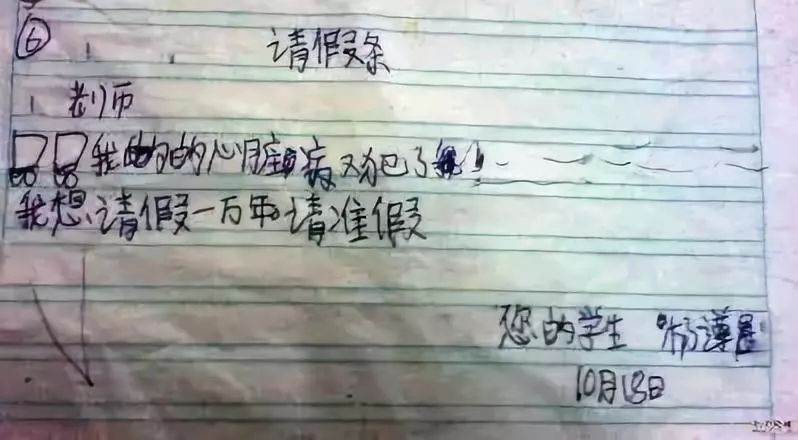 ⑥ 请假条
老师
我的的心脏病又犯了
我想请假一万年。请准假
您的学生 杨
10月18日